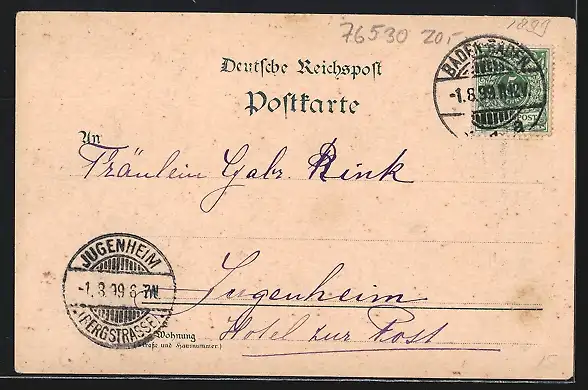 76530 20,-
1899
Deutsche Reichspost
Postkarte
BADEN-BADEN
-1.8.99
An
Fräulein Gabr. Rink
JUGENHEIM
-1.8.99 6-7N.
(BERGSTRASSE)
Jugenheim
Wohnung
(Straße und Hausnummer)
Hotel zur Post